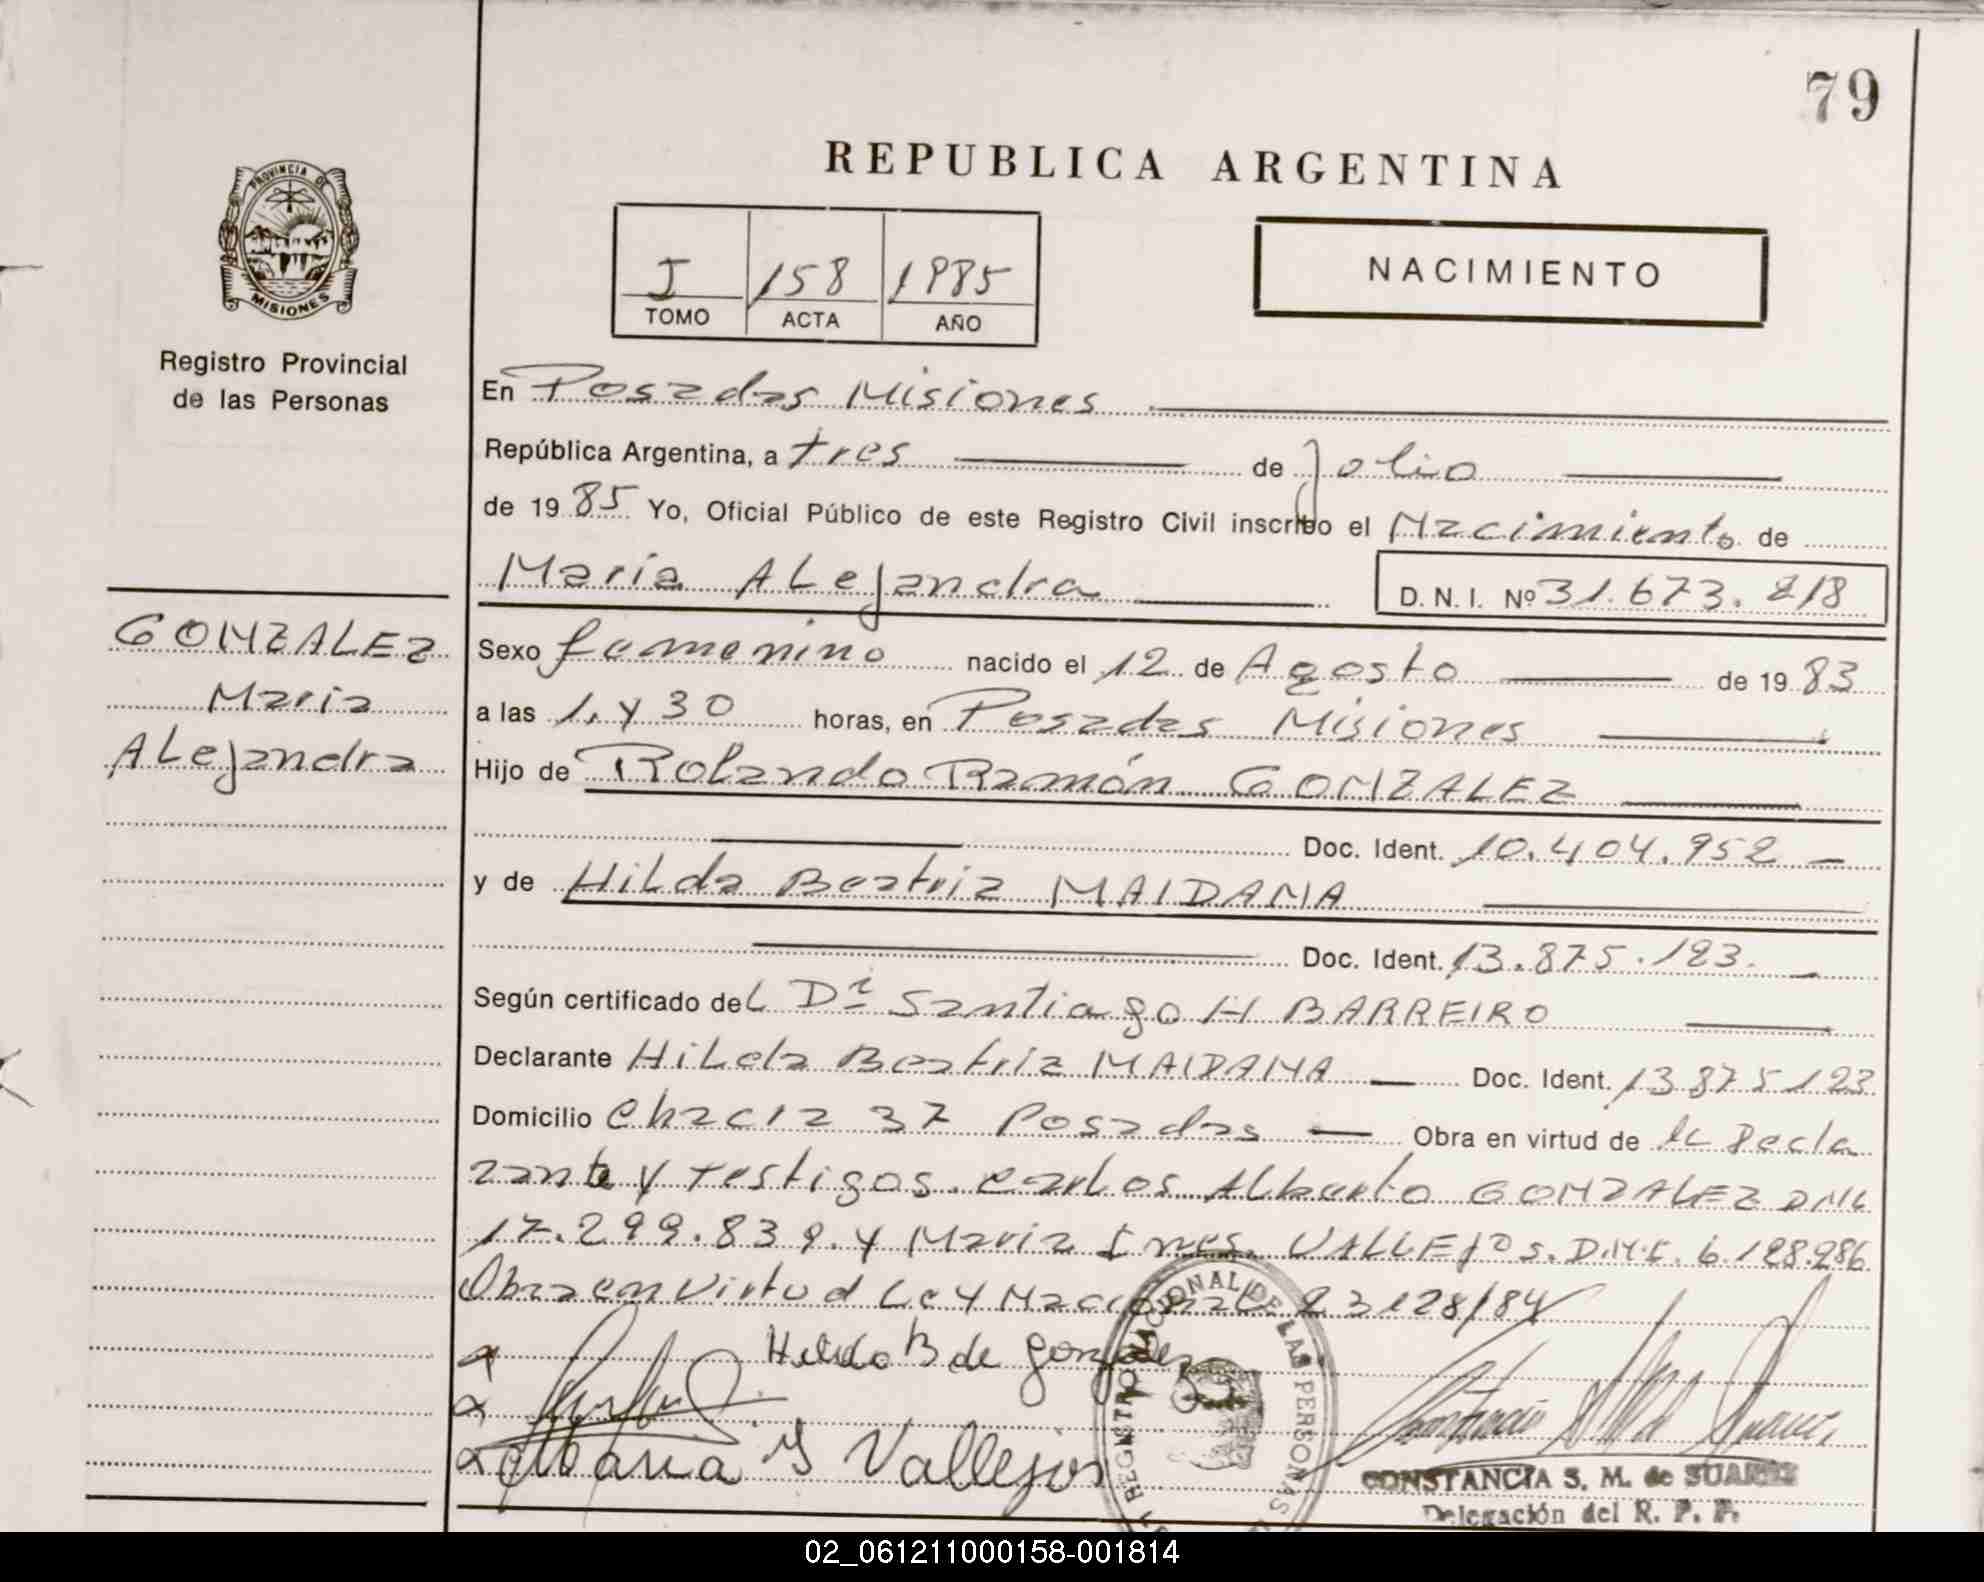 79
REPUBLICA ARGENTINA
PROVINCIA DE
MISIONES
I 158 1985
TOMO ACTA AÑO
NACIMIENTO
Registro Provincial
de las Personas
En Posadas Misiones
República Argentina, a tres de Julio
de 19 85 Yo, Oficial Público de este Registro Civil inscribo el Nacimiento de
Maria ALejandra D. N. I. Nº 31.673.218
GONZALEZ
Maria
ALejandra
Sexo femenino nacido el 12 de Agosto de 19 83
a las 1, y 30 horas, en Posadas Misiones
Hijo de Rolando Ramón GONZALEZ
Doc. Ident. 10.404.952
y de HiLda Beatriz MAIDANA
Doc. Ident. 13.875.123.
Según certificado deL Dr Santiago H BARREIRO
Declarante HiLda Beatriz MAIDANA Doc. Ident. 13 875 123
Domicilio Chacra 37 Posadas Obra en virtud de la Decla
rante y Testigos. Carlos Alberto GONZALEZ DNI
17.299.839. y Maria Ines. VALLEJOS. D.N.I. 6.128.286
Obra en virtud Ley Nacional 23128/84
Hilda B de Gonzalez
Maria Y Vallejos
REGISTRO NACIONAL DE LAS PERSONAS
CONSTANCIA S. M. de SUAREZ
Delegación del R. P. P.
02_061211000158-001814